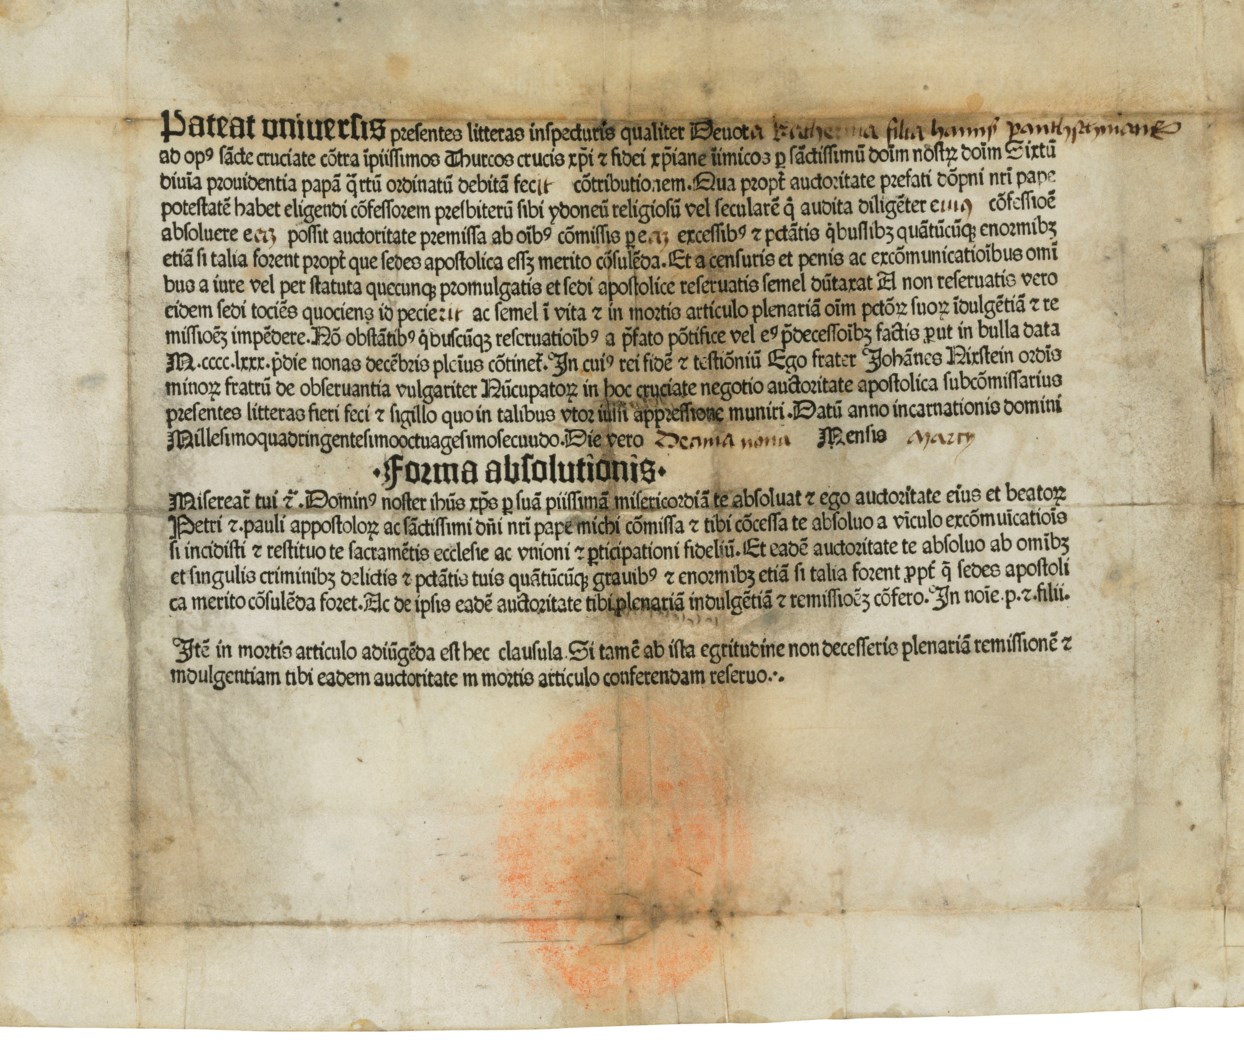 Pateat vniuersis presentes litteras inspecturis qualiter Deuota Katherina filia hannß
ad opꝰ sãcte cruciate cõtra ĩpiissimos Thurcos crucis xp̃i ⁊ fidei xp̃iane ĩimicos ꝑ sãctissimũ doĩm nostꝝ doĩm Sixtũ
diuĩa prouidentia papã q̃rtũ ordinatũ debitã fecit cõtributionem. Qua propt̃ auctoritate prefati dõpni nr̃i pape
potestatẽ habet eligendi cõfessorem presbiterũ sibi ydoneũ religiosũ vel secularẽ q̃ audita diligẽter eiuꝰ cõfessioẽ
absoluere eaz possit auctoritate premissa ab oĩbꝰ cõmissis ꝑ eaz excessibꝰ ⁊ pctãtis q̃buslibꝫ quãtũcũqꝫ enormibꝫ
etiã si talia forent propt̃ que sedes apostolica essꝫ merito cõsulẽda. Et a censuris et penis ac excõmunicatioĩbus omĩ
bus a iure vel per statuta quecunqꝫ promulgatis et sedi apostolice reseruatis semel dũtaxat A non reseruatis vero
eidem sedi tociẽs quociens id pecierit ac semel ĩ vita ⁊ in mortis articulo plenariã oĩm pctõꝝ suoꝝ ĩdulgẽtiã ⁊ re
missioẽꝫ impẽdere. Nõ obstãtibꝰ q̃buscũqꝫ reseruatioĩbꝰ a p̃fato põtifice vel eꝰ p̃decessoĩbꝫ factis ꝓut in bulla data
M.cccc.lxxx. p̃die nonas decẽbris pleĩus cõtinet̃. In cuiꝰ rei fidẽ ⁊ testiõniũ Ego frater Johãnes Nixstein ordĩs
minoꝝ fratrũ de obseruantia vulgariter Nũcupatoꝝ in hoc cruciate negotio auctoritate apostolica subcõmissarius
presentes litteras fieri feci ⁊ sigillo quo in talibus vtor iussi appressione muniri. Datũ anno incarnationis domini
Millesimoquadringentesimooctuagesimosecuudo. Die vero Decima nona Mensis Marty
·Forma absolutionis·
Misereat̃ tui ⁊c̃. Dominꝰ noster ihũs xp̃s ꝑ suã piissimã misericordiã te absoluat ⁊ ego auctoritate eiꝰus et beatoꝝ
Petri ⁊. pauli appostoloꝝ ac sãctissimi dñi nr̃i pape michi cõmissa ⁊ tibi cõcessa te absoluo a vĩculo excõmuĩcatioĩs
si incidisti ⁊ restituo te sacramẽtis ecclesie ac vnioni ⁊ ꝑticipationi fideliũ. Et eadẽ auctoritate te absoluo ab omĩbꝫ
et singulis criminibꝫ delictis ⁊ pctãtis tuis quãtũcũqꝫ grauibꝰ ⁊ enormibꝫ etiã si talia forent ꝓpt̃ q̃ sedes apostoli
ca merito cõsulẽda foret. Ac de ipsis eadẽ auctoritate tibi plenariã indulgẽtiã ⁊ remissioẽꝫ cõfero. In noĩe.p.⁊.filii.
Itẽ in mortis articulo adiũgẽda est hec clausula. Si tamẽ ab ista egritudine non decesseris plenariã remissionẽ ⁊
indulgentiam tibi eadem auctoritate in mortis articulo conferendam reseruo.·.